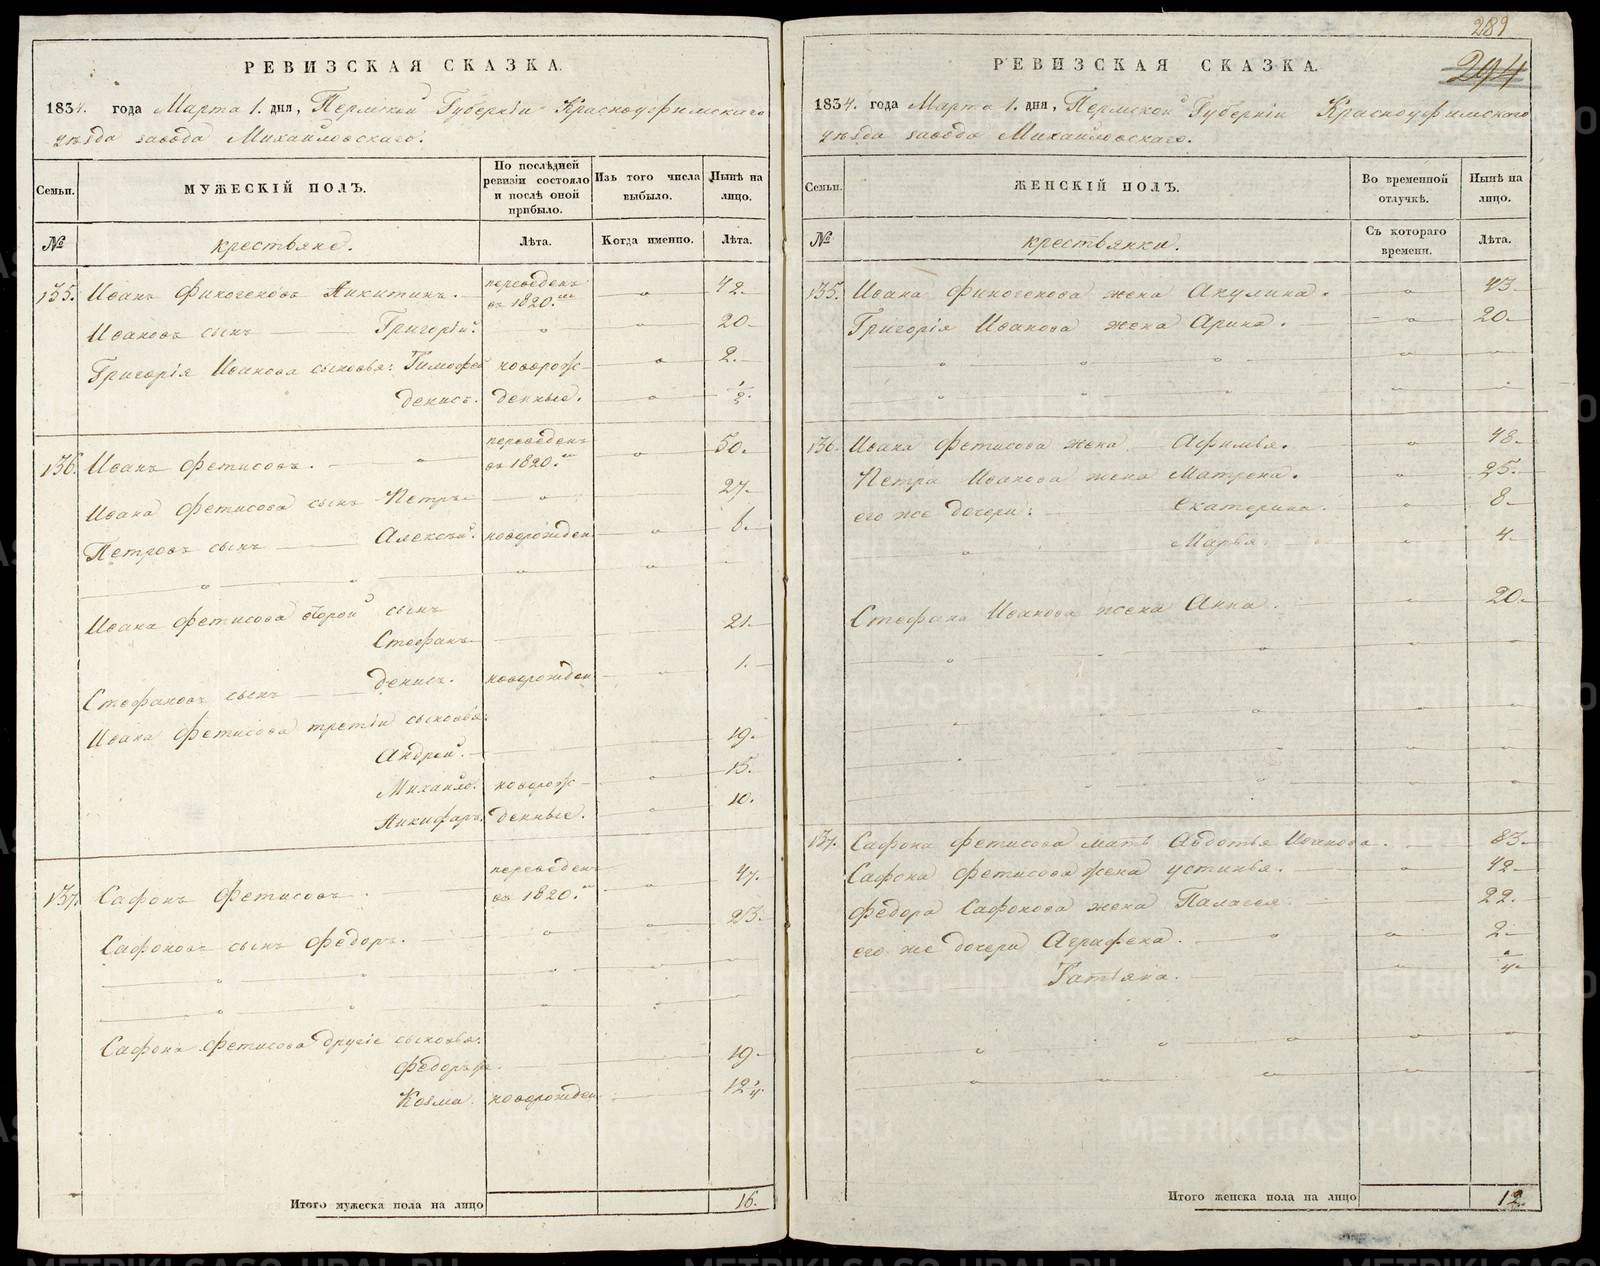 РЕВИЗСКАЯ СКАЗКА.
1834. года Марта 1. дня, Пермской Губернiи Красноуфимскаго
уѣзда завода Михайловскаго.
Семьи.
МУЖЕСКIЙ ПОЛЪ.
По послѣдней ревизiи состояло и послѣ оной прибыло.
Изъ того числа выбыло.
Нынѣ на лицо.
№
крестьяне.
Лѣта.
Когда именно.
Лѣта.
135. Иванъ Финогеновъ Никитинъ. переведенъ въ 1820.мъ 42.
Ивановъ сынъ Григорiй. 20.
Григорiя Иванова сыновья: Тимофей новорож 2.
денисъ. денные. 1/2.
136. Иванъ Фетисовъ. переведенъ въ 1820.мъ 50.
Ивана Фетисова сынъ Петръ 27.
Петровъ сынъ Алексѣй. новорожден 6.
Ивана Фетисова второй сынъ
Стефанъ 21.
Стефановъ сынъ денисъ. новорожден 1.
Ивана Фетисова третiи сыновья:
Андрей. 19.
Михайло. новорож 15.
Никифоръ. денные. 10.
137. Сафонъ Фетисовъ. переведенъ въ 1820.мъ 47.
Сафоновъ сынъ Федоръ. 23.
Сафона Фетисова другiе сыновья:
Федоръ 19.
Козма. новорожден 12 1/4.
Итого мужеска пола на лицо 16.
289
294
РЕВИЗСКАЯ СКАЗКА.
1834. года Марта 1. дня, Пермской Губернiи Красноуфимскаго
уѣзда завода Михайловскаго.
Семьи.
ЖЕНСКIЙ ПОЛЪ.
Во временной отлучкѣ.
Нынѣ на лицо.
№
крестьянки.
Съ котораго времени.
Лѣта.
135. Ивана Финогенова жена Акулина. 43.
Григорiя Иванова жена Арина. 20.
136. Ивана Фетисова жена Афимья. 48.
Петра Иванова жена Матрена. 25.
его же дочери: Екатерина. 8.
Марья. 4.
Стефана Иванова жена Анна. 20.
137. Сафона Фетисова мать Авдотья Иванова. 83.
Сафона Фетисова жена устинья. 42.
Федора Сафонова жена Палагея 22.
его же дочери Агрифена. 2.
Татьяна.
Итого женска пола на лицо 12.
METRIKI.GASO-URAL.RU